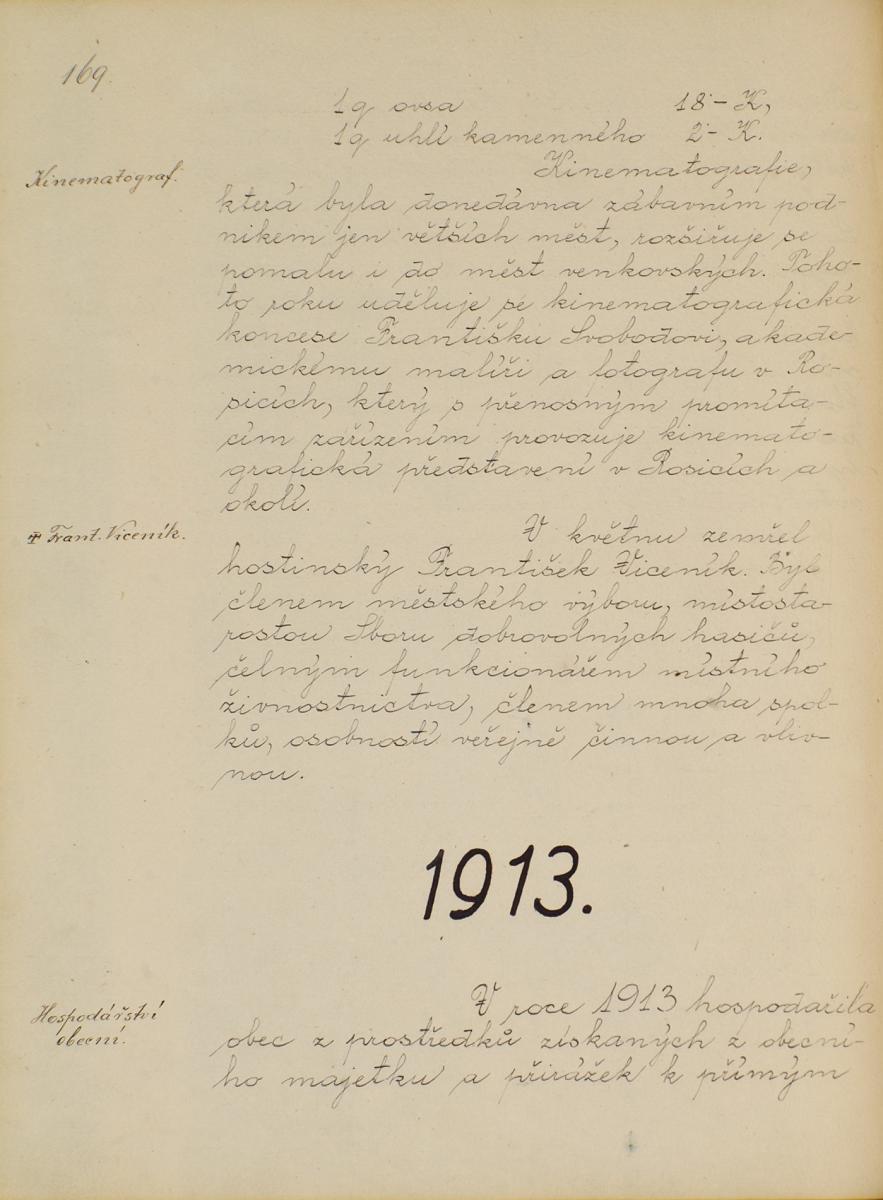 169.
1q ovsa 18·– K,
1q uhlí kamenného 2·– K.
Kinematograf.
Kinematografie,
která byla donedávna zábavním pod-
nikem jen větších měst, rozšiřuje se
pomalu i do měst venkovských. Toho-
to roku uděluje se kinematografická
koncese Františku Svobodovi, akade-
mickému malíři a fotografu v Ro-
sicích, který s přenosným promíta-
cím zařízením provozuje kinemato-
grafická představení v Rosicích a
okolí.
✝ Frant. Viceník.
V květnu zemřel
hostinský František Viceník. Byl
členem městského výboru, místosta-
rostou Sboru dobrovolných hasičů,
čelným funkcionářem místního
živnostnictva, členem mnoha spol-
ků, osobností veřejně činnou a vliv-
nou.
1913.
Hospodářství
obecní.
V roce 1913 hospodařila
obec z prostředků získaných z obecní-
ho majetku a přirážek k přímým